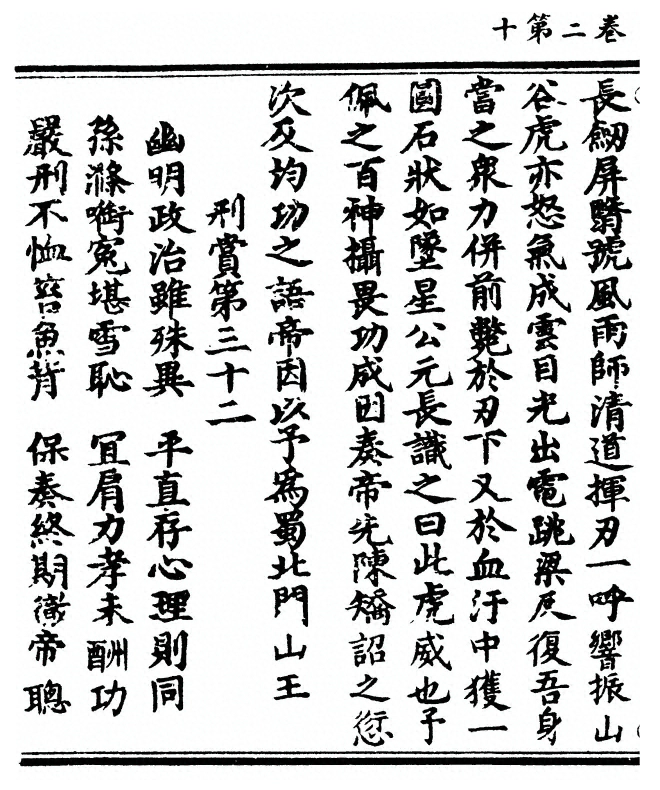 卷二第十
長劒屏翳號風雨師清道揮刃一呼響振山
谷虎亦怒氣成雲目光出電跳梁反復吾身
當之衆力併前斃於刃下又於血汙中獲一
圓石狀如墜星公元長識之曰此虎威也予
佩之百神攝畏功成因奏帝先陳矯詔之愆
次及均功之語帝因以予為蜀北門山王
刑賞第三十二
幽明政治雖殊異 平直存心理則同
孫滌啣冤堪雪恥 冝肩力孝未酬功
嚴刑不恤魚背 保奏終期徹帝聰